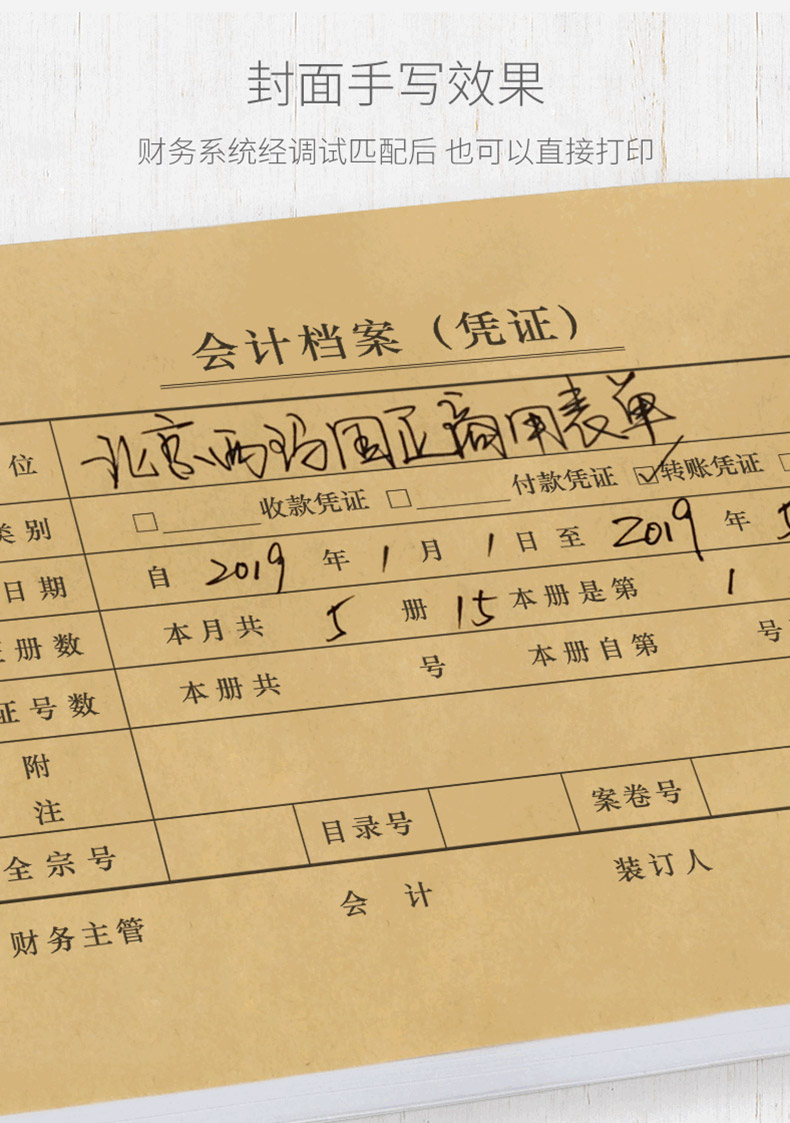 封面手写效果
财务系统经调试匹配后 也可以直接打印
会计档案（凭证）
位 北京西玛国正商用表单
类别 □ 收款凭证 □ 付款凭证 ☑ 转账凭证 □
日期 自 2019 年 1 月 1 日 至 2019 年 5
册数 本月共 5 册 15 本册是第 1
证号数 本册共 号 本册自第 号
附
注
全宗号 目录号 案卷号
财务主管 会 计 装订人